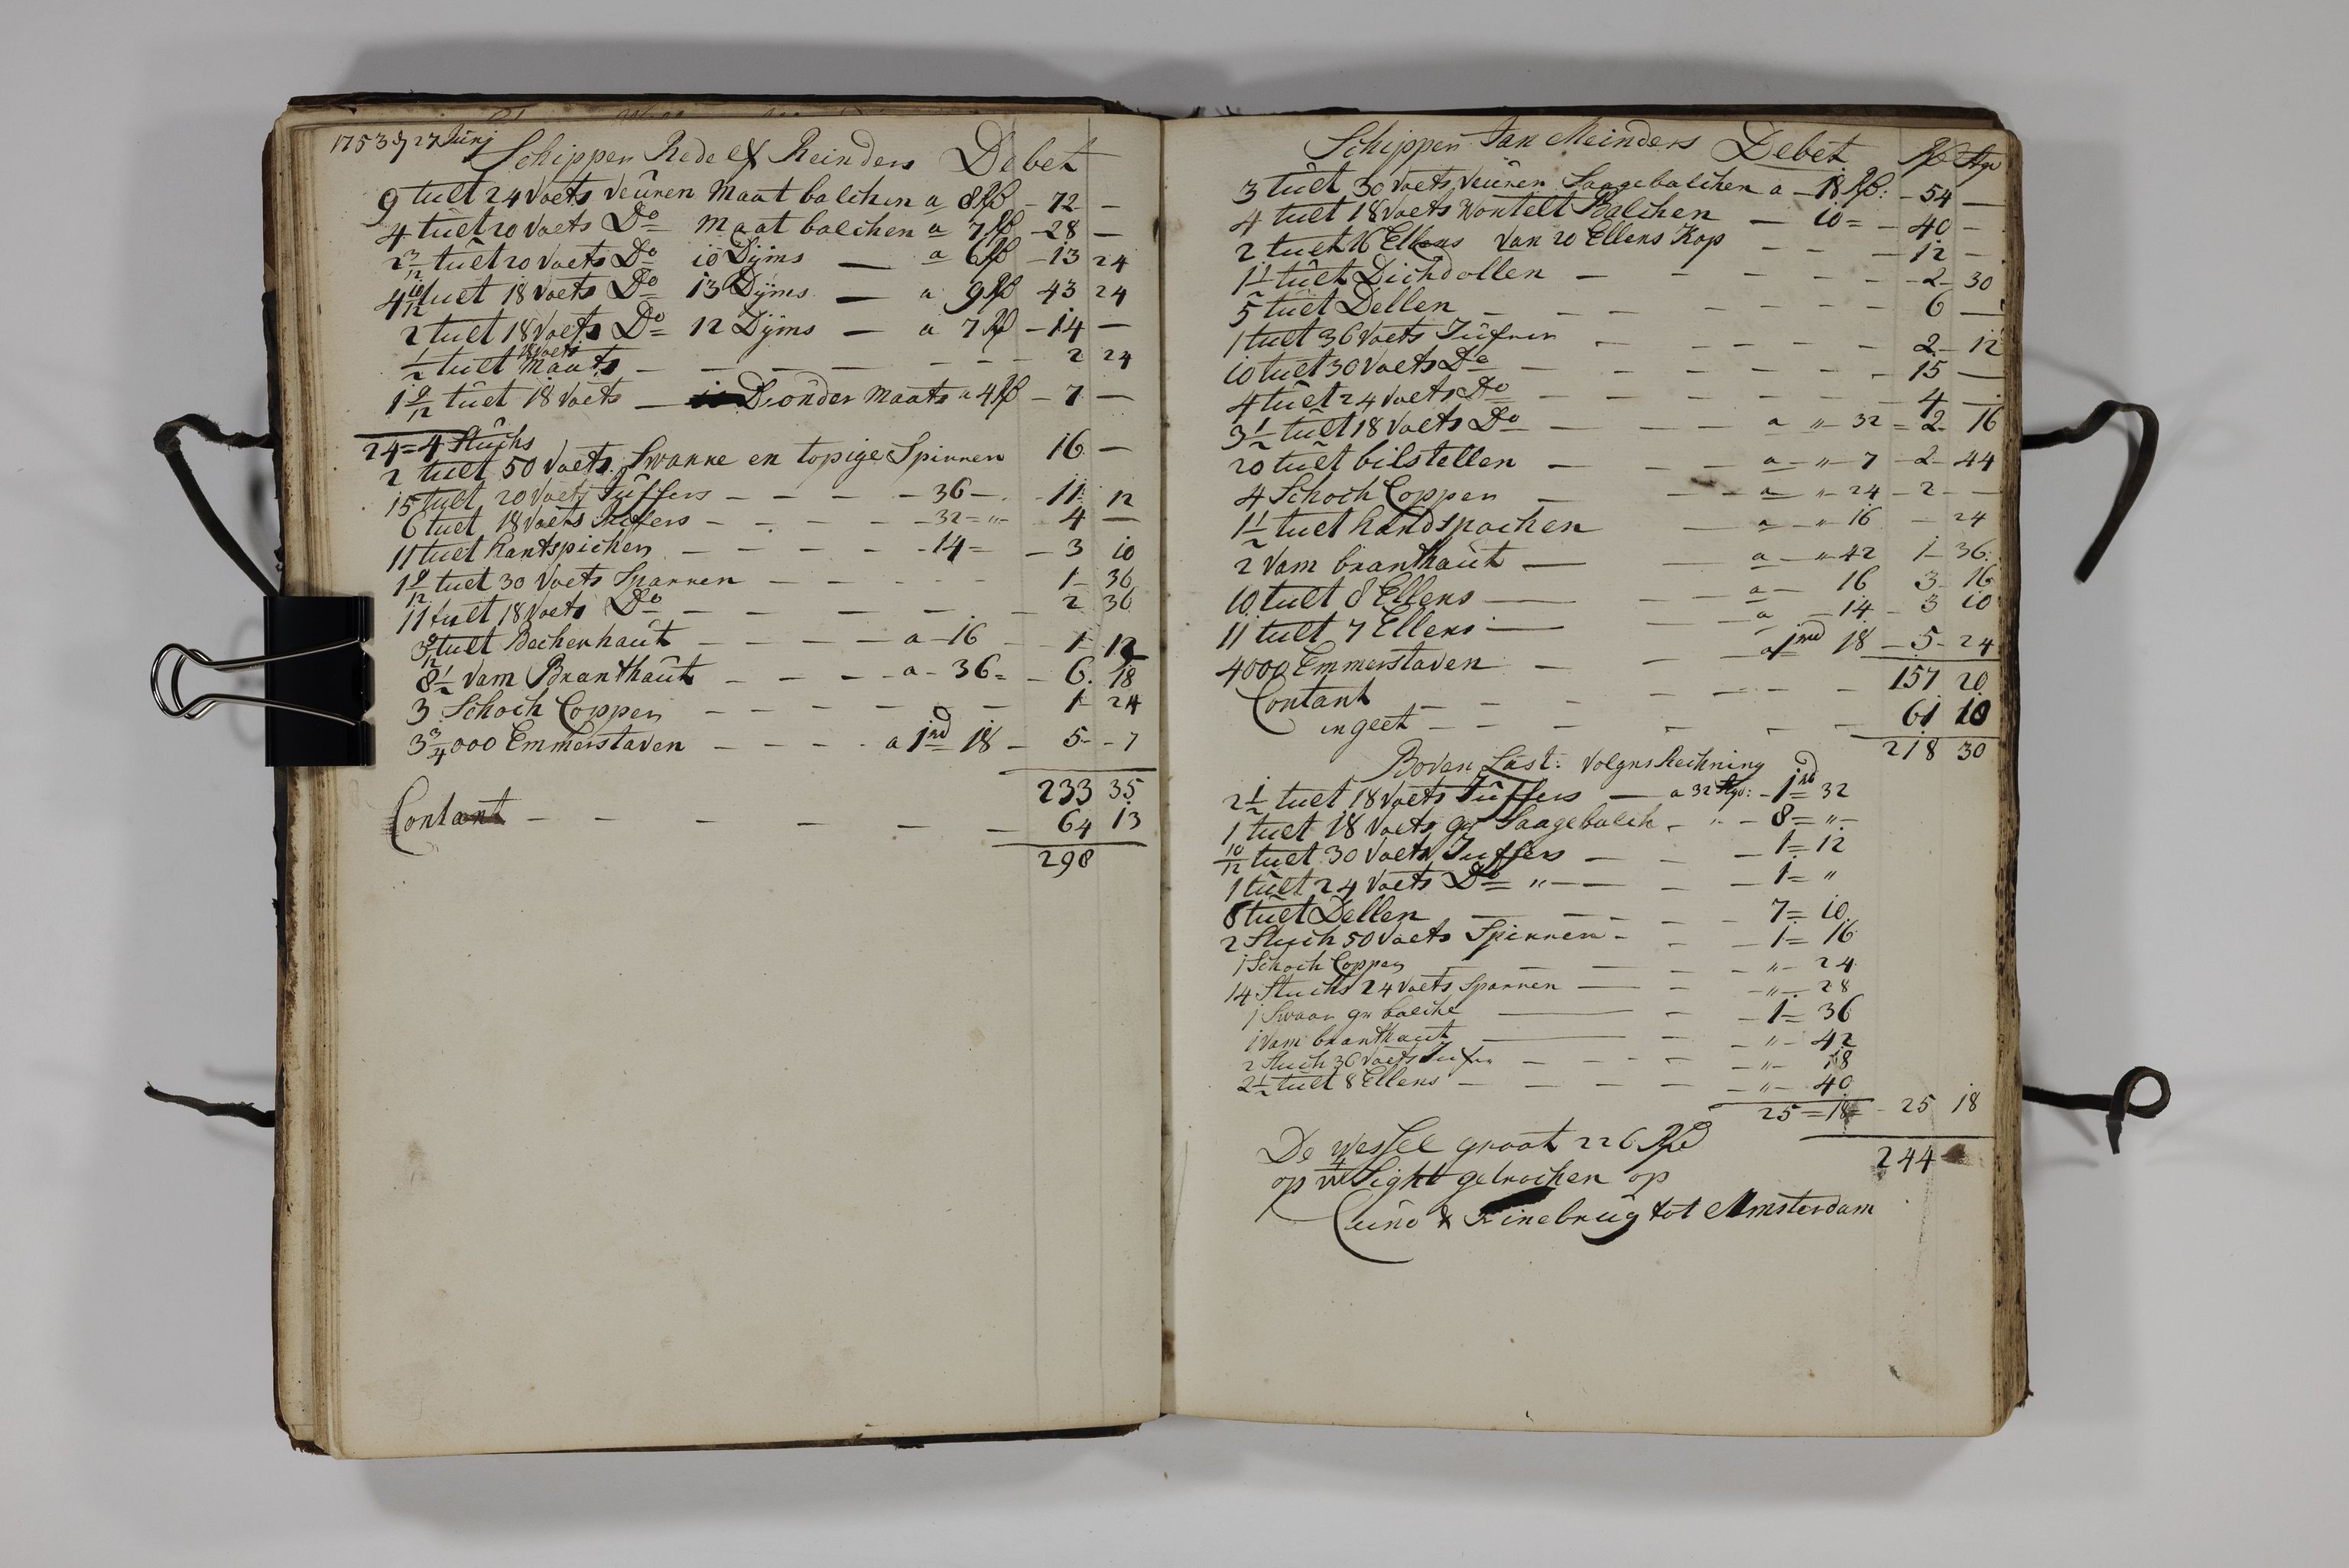 1753 d 27 Junj
Schipper Rede Reinders Debet
9 tult 24 Voets Veuren Maat balchen a 8 - 72 -
4 tult 20 Voets Do Maat balchen a 7 - 28 -
2 3/12 tult 20 Voets Do 10 Dijms - a 6 - 13 24
4 10/12 tult 18 Voets Do 13 Dijms - a 9 43 24
2 tult 18 Voets Do 12 Dijms - a 7 - 14 -
1/2 tult 18 Voets Maats - - - - - - 2 24
1 9/12 tult 18 Voets - Dronder Maats a 4 - 7 -
24 = 4 Stuchs
2 tult 50 Voets Swanke en topige Spinnen 16 -
15 tult 20 Voets Juffers - - - - 36 - 11 12
6 tult 18 Voets Juffers - - - - 32 = " - 4 -
11 tult Hantspichen - - - - - 14 = - 3 10
1 9/12 tult 30 Voets Sparren - - - - - 1 - 36
11 tult 18 Voets Do - - - - - - 2 36
tult Bechenhaut - - - - a - 16 - 1 - 12
8 1/2 Vam Branthaut - - - - a - 36 = - 6 18
3 Schoch Coppen - - - - - - - 1 - 24
3 3/4 000 Emmerstaven - - - - a 1 18 - 5 - - 7
233 35
Contant - - - - - - 64 13
298
Schipper Jan Meinders Debet
3 tult 30 Voets Veuren Saagebalchen a - 18 : - 54 -
4 tult 18 Voets Wontelt Balchen - 10 = - 40 -
2 tult 16 Ellens Van 20 Ellens Kop - - - 12 -
1 1/2 tult Dichdollen - - - - - - 2 - 30
5 tult Dellen - - - - - - 6 -
1 tult 36 Voets Jufern - - - - - 2 - 12
10 tult 30 Voets Do - - - - - - 15 -
4 tult 24 Voets Do - - - - - - 4 -
3 1/2 tult 18 Voets Do - - - a " - 32 = 2 - 16
20 tult bilstellen - - - a - " - 7 - 2 - 44
4 Schoch Coppen - - - a - " - 24 - 2 - -
1 1/2 tult handspachen - a - " 16 - 24
2 Vam branthaut - - a - " - 42 1 - 36
10 tult 8 Ellens - - - a - 16 3 - 16
11 tult 7 Ellens - - - a - 14 - 3 10
4000 Emmerstaven - - a 1 18 - 5 - 24
157 20
Contant - - - - - -
ingeet - - - - - - 61 10
218 30
Boven Last: Volgns Rechning
2 1/2 tult 18 Voets Juffers - a 32 : - 1 = 32
1 tult 18 Voets gr Saagebalch - " - 8 = " -
10/12 tult 30 Voets Juffers - - - 1 = 12
1 tult 24 Voets Do = " - - - - 1 = "
8 tult Dellen - - - - 7 = 10
2 Stuch 50 Voets Spinnen - - - 1 = 16
1 Schoch Coppen - - - - - " - 24
14 Stuchs 24 Voets Sparren - - - " - 28
1 Swaar gr balche - - - 1 = 36
1 Vam branthaut - - - " - 42
2 Stuch 36 Voets Jufer - - - - - " - 18
2 1/2 tult 8 Ellens - - - - - - " - 40
25 = 18 = - 25 18
244
De Wessel groot 226
op 4 W Sight getrochen op
Cuno & tot Amsterdam